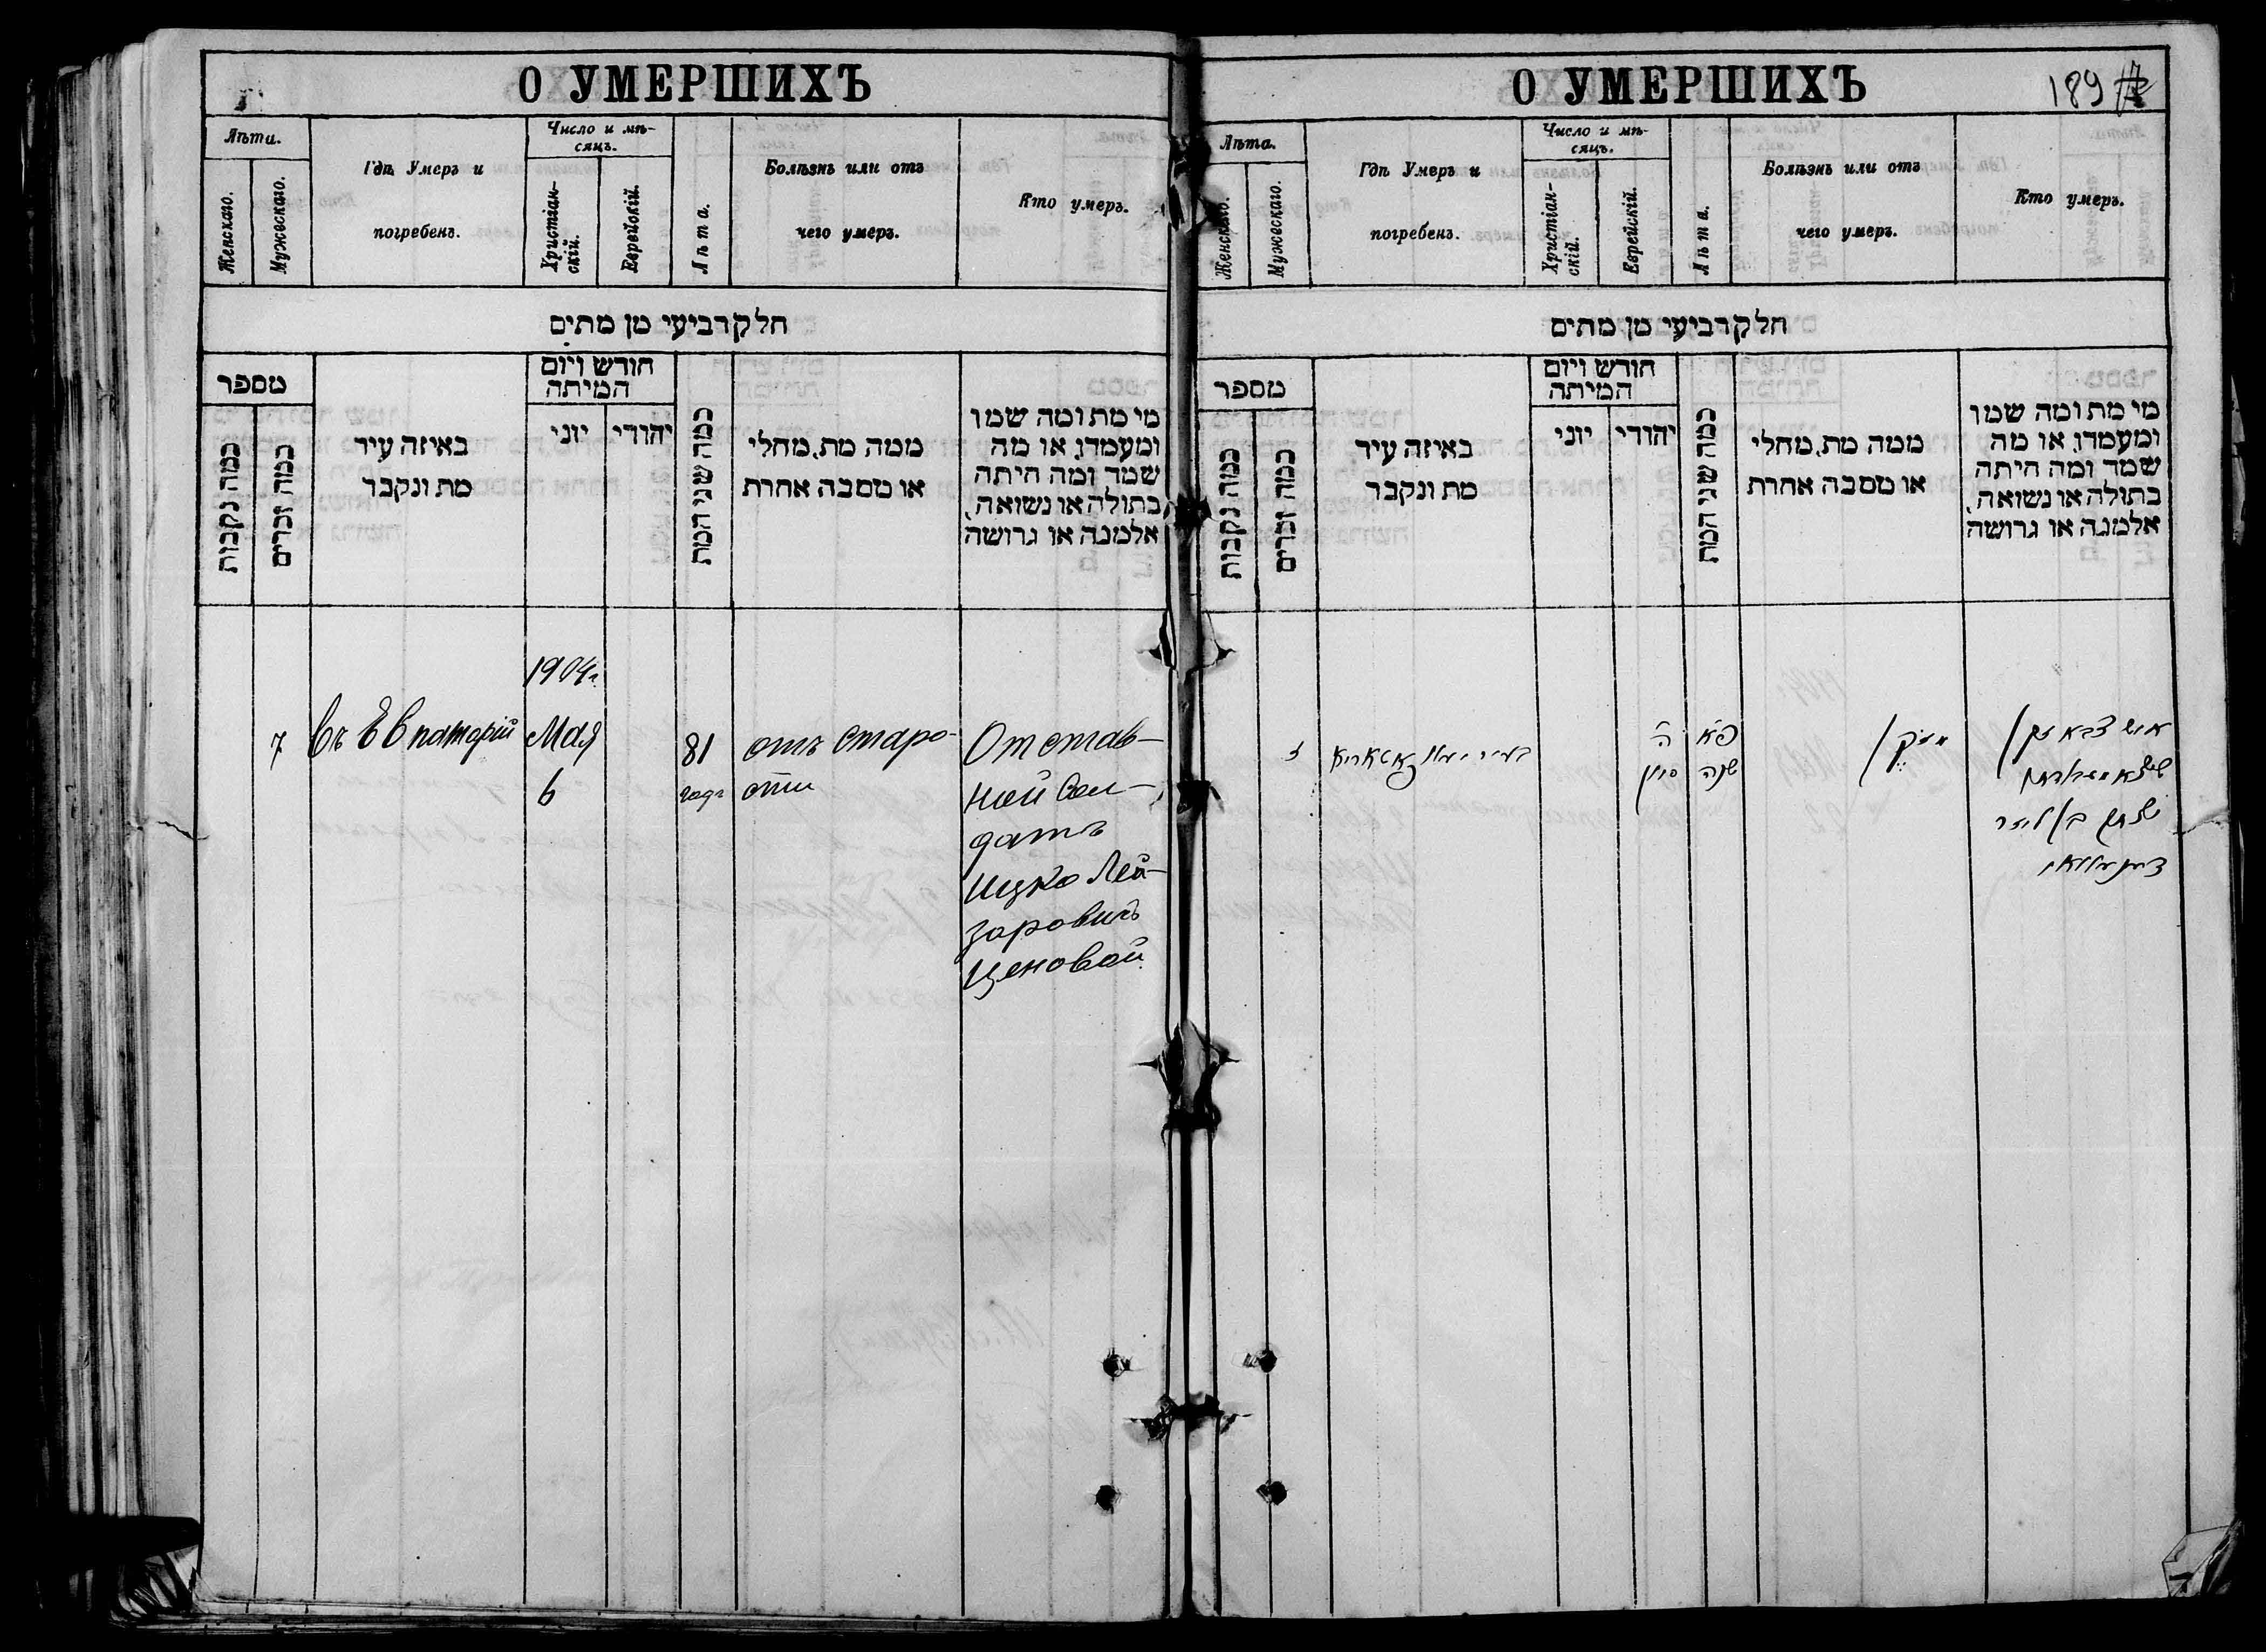 О УМЕРШИХЪ
Лѣта.
Женскаго.
Мужескаго.
Гдѣ Умеръ и
погребенъ.
Число и мѣ-
сяцъ.
Христіан-
скій.
Еврейскій.
Лѣта.
Болѣзнь или отъ
чего умеръ.
Кто умеръ.
חלק רביעי מן מתים
מספר
כמה נקבות
כמה זכרים
באיזה עיר
מת ונקבר
חודש ויום
המיתה
יוני
יהודי
כמה שני המת
ממה מת, מחלי
או מסבה אחרת
מי מת ומה שמו
ומעמדו, או מה
שמד ומה היתה
בתולה או נשואה,
אלמנה או גרושה
7
въ Евпаторіи
1904г.
Мая
6
81
годъ
отъ старо-
сти
Отстав-
ной Сол-
датъ
Ицко Лей-
заровичъ
Ценовой
О УМЕРШИХЪ
189
Лѣта.
Женскаго.
Мужескаго.
Гдѣ Умеръ и
погребенъ.
Число и мѣ-
сяцъ.
Христіан-
скій.
Еврейскій.
Лѣта.
Болѣзнь или отъ
чего умеръ.
Кто умеръ.
חלק רביעי מן מתים
מספר
כמה נקבות
כמה זכרים
באיזה עיר
מת ונקבר
חודש ויום
המיתה
יוני
יהודי
כמה שני המת
ממה מת, מחלי
או מסבה אחרת
מי מת ומה שמו
ומעמדו, או מה
שמד ומה היתה
בתולה או נשואה,
אלמנה או גרושה
ז
ה
סיון
פ״א
שנה
איש צבא זקן
יצחק בן ליזר